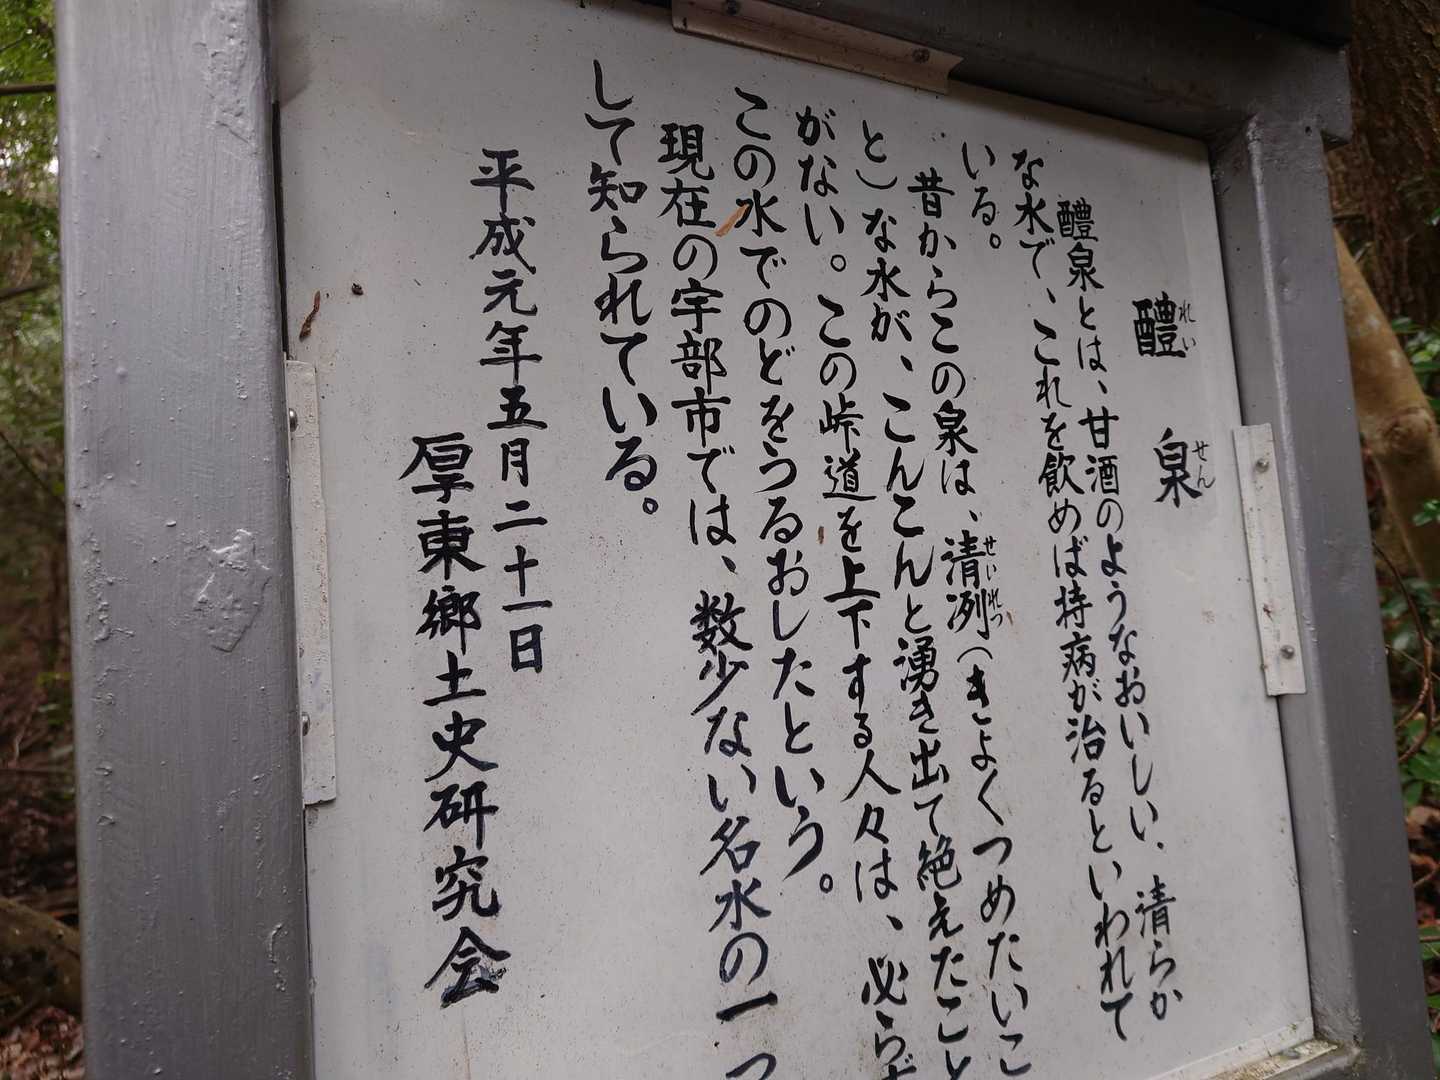 醴泉
れいせん
醴泉とは、甘酒のようなおいしい、清らか
な水で、これを飲めば持病が治るといわれて
いる。
昔からこの泉は、清洌(きよくつめたいこ
せいれつ
と)な水が、こんこんと湧き出て絶えたこと
がない。この峠道を上下する人々は、必らず
この水でのどをうるおしたという。
現在の宇部市では、数少ない名水の一つ
して知られている。
平成元年五月二十一日
厚東郷土史研究会